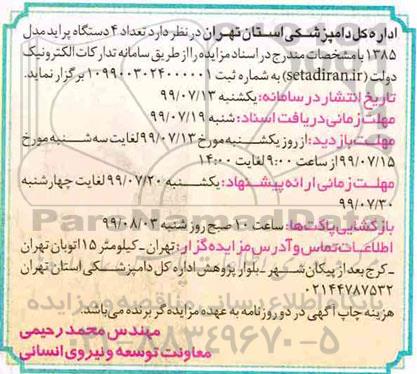 اداره کل دامپزشکی استان تهران در نظر دارد تعداد ۴ دستگاه پراید مدل
۱۳۸۵ با مشخصات مندرج در اسناد مزایده را از طریق سامانه تدارکات الکترونیک
دولت (setadiran.ir) به شماره ثبت ۱۰۹۹۰۰۳۰۲۴۰۰۰۰۰۱ برگزار نماید.
تاریخ انتشار در سامانه: یکشنبه ۹۹/۰۷/۱۳
مهلت زمانی دریافت اسناد: شنبه ۹۹/۰۷/۱۹
مهلت بازدید: از روز یکشنبه مورخ ۹۹/۰۷/۱۳ لغایت سه شنبه مورخ
۹۹/۰۷/۱۵ از ساعت ۹:۰۰ لغایت ۱۴:۰۰
مهلت زمانی ارائه پیشنهاد: یکشنبه ۹۹/۰۷/۲۰ لغایت چهارشنبه
۹۹/۰۷/۳۰
بازگشایی پاکت ها: ساعت ۱۰ صبح روز شنبه ۹۹/۰۸/۰۳
اطلاعات تماس و آدرس مزایده گزار: تهران - کیلومتر ۱۵ اتوبان تهران
- کرج بعد از پیکان شهر - بلوار پژوهش اداره کل دامپزشکی استان تهران
۰۲۱۴۴۷۸۷۵۳۲
هزینه چاپ آگهی در دو روزنامه به عهده مزایده گر برنده می باشد.
مهندس محمد رحیمی
معاونت توسعه و نیروی انسانی
ParsNamadData
پایگاه اطلاع رسانی مناقصه و مزایده
۰۲۱-۸۸۳۴۹۶۷۰-۵